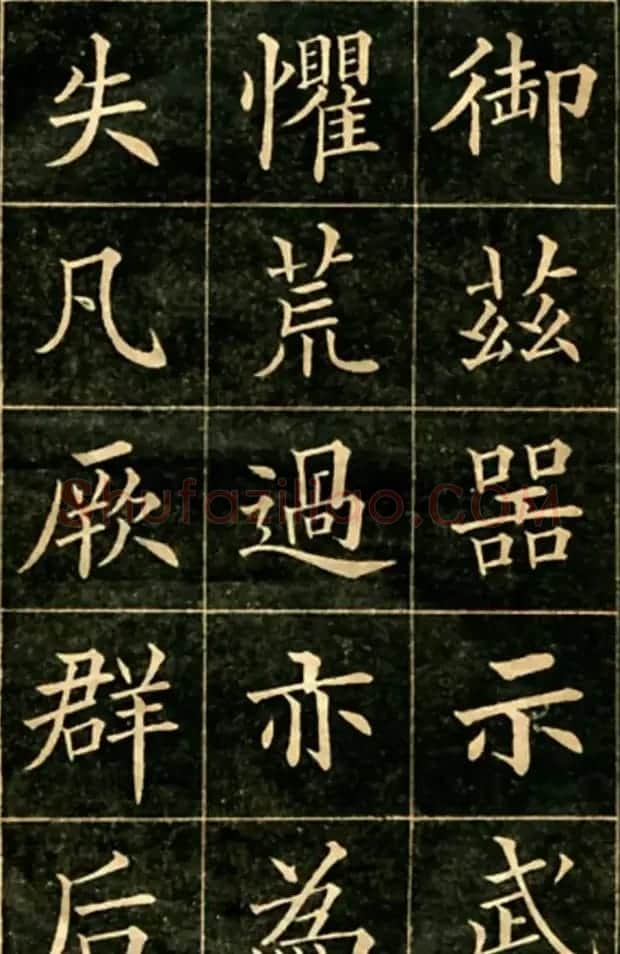 御茲器示武
懼荒過亦為
失凡厥群后
Shufaziliao.COM